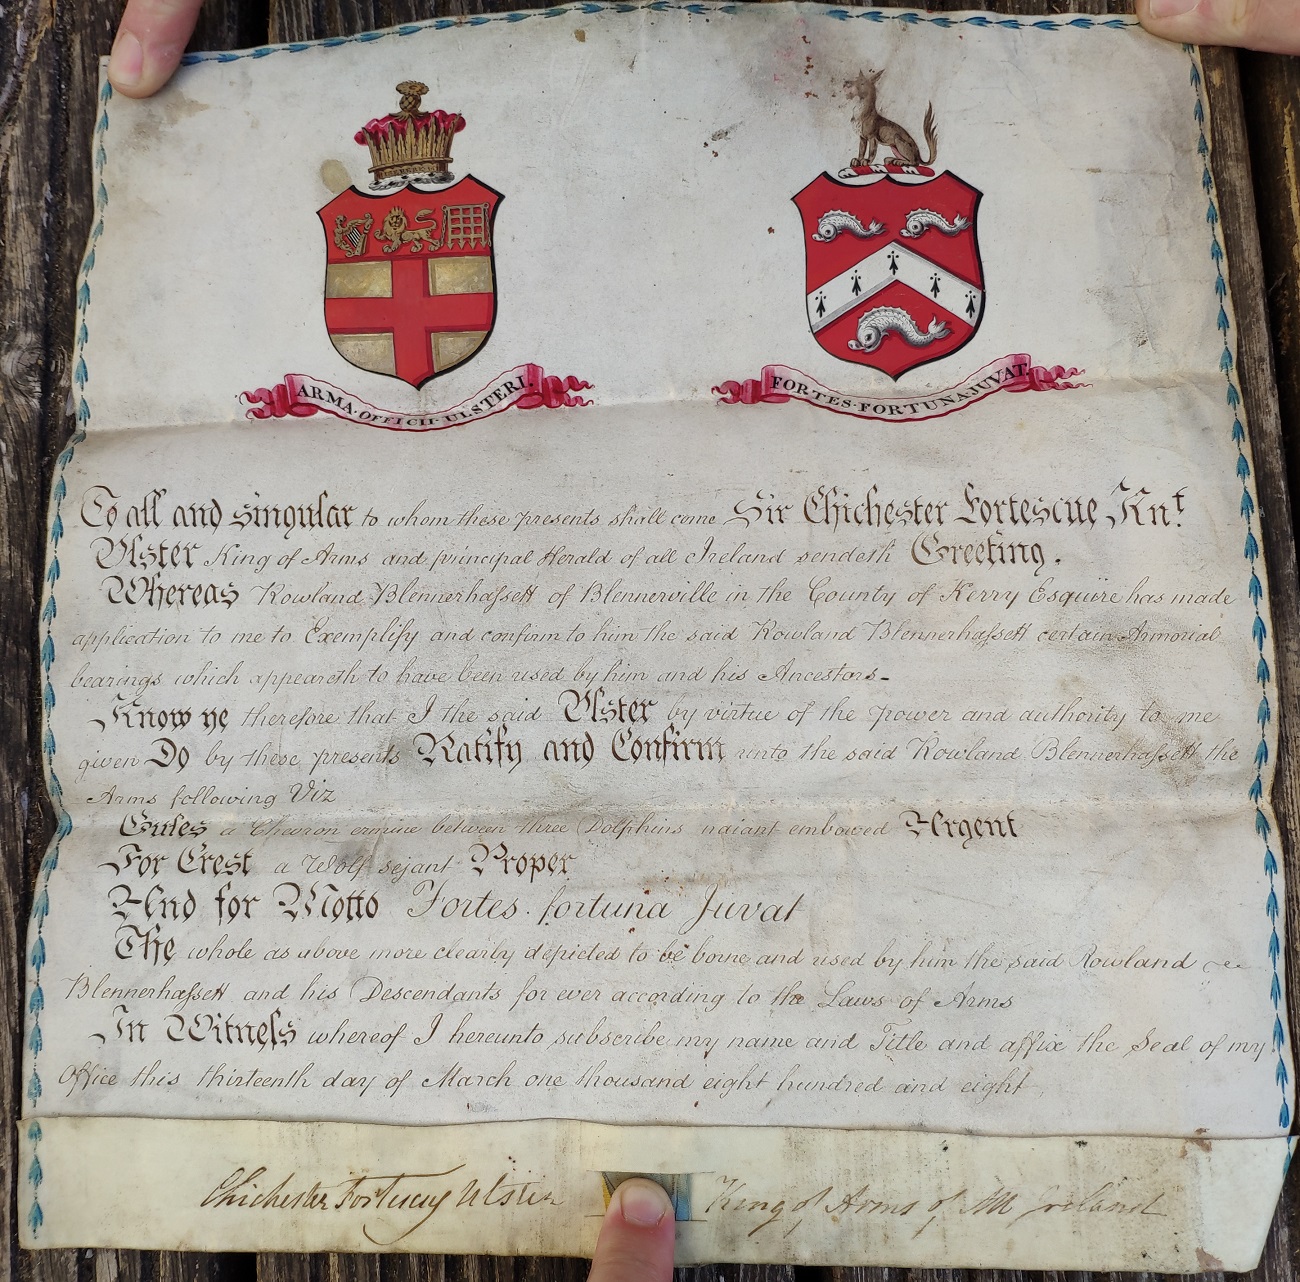 ARMA·OFFICII·ULSTERI.
FORTES·FORTUNA·JUVAT
To all and singular to whom these presents shall come Sir Chichester Fortescue Knt.
Ulster King of Arms and principal Herald of all Ireland sendeth Greeting.
Whereas Rowland Blennerhaſsett of Blennerville in the County of Kerry Esquire has made
application to me to Exemplify and confirm to him the said Rowland Blennerhaſsett certain Armorial
bearings which appeareth to have been used by him and his Ancestors-
Know ye therefore that I the said Ulster by virtue of the power and authority to me
given Do by these presents Ratify and Confirm unto the said Rowland Blennerhaſsett the
Arms following Viz
Gules a Chevron ermine between three Dolphins naiant embowed Argent
For Crest a Wolf sejant Proper
And for Motto Fortes fortuna Juvat
The whole as above more clearly depicted to be borne and used by him the said Rowland
Blennerhaſsett and his Descendants for ever according to the Laws of Arms
In Witneſs whereof I hereunto subscribe my name and Title and affix the Seal of my
Office this thirteenth day of March one thousand eight hundred and eight
Chichester Fortescue Ulster King of Arms of All Ireland